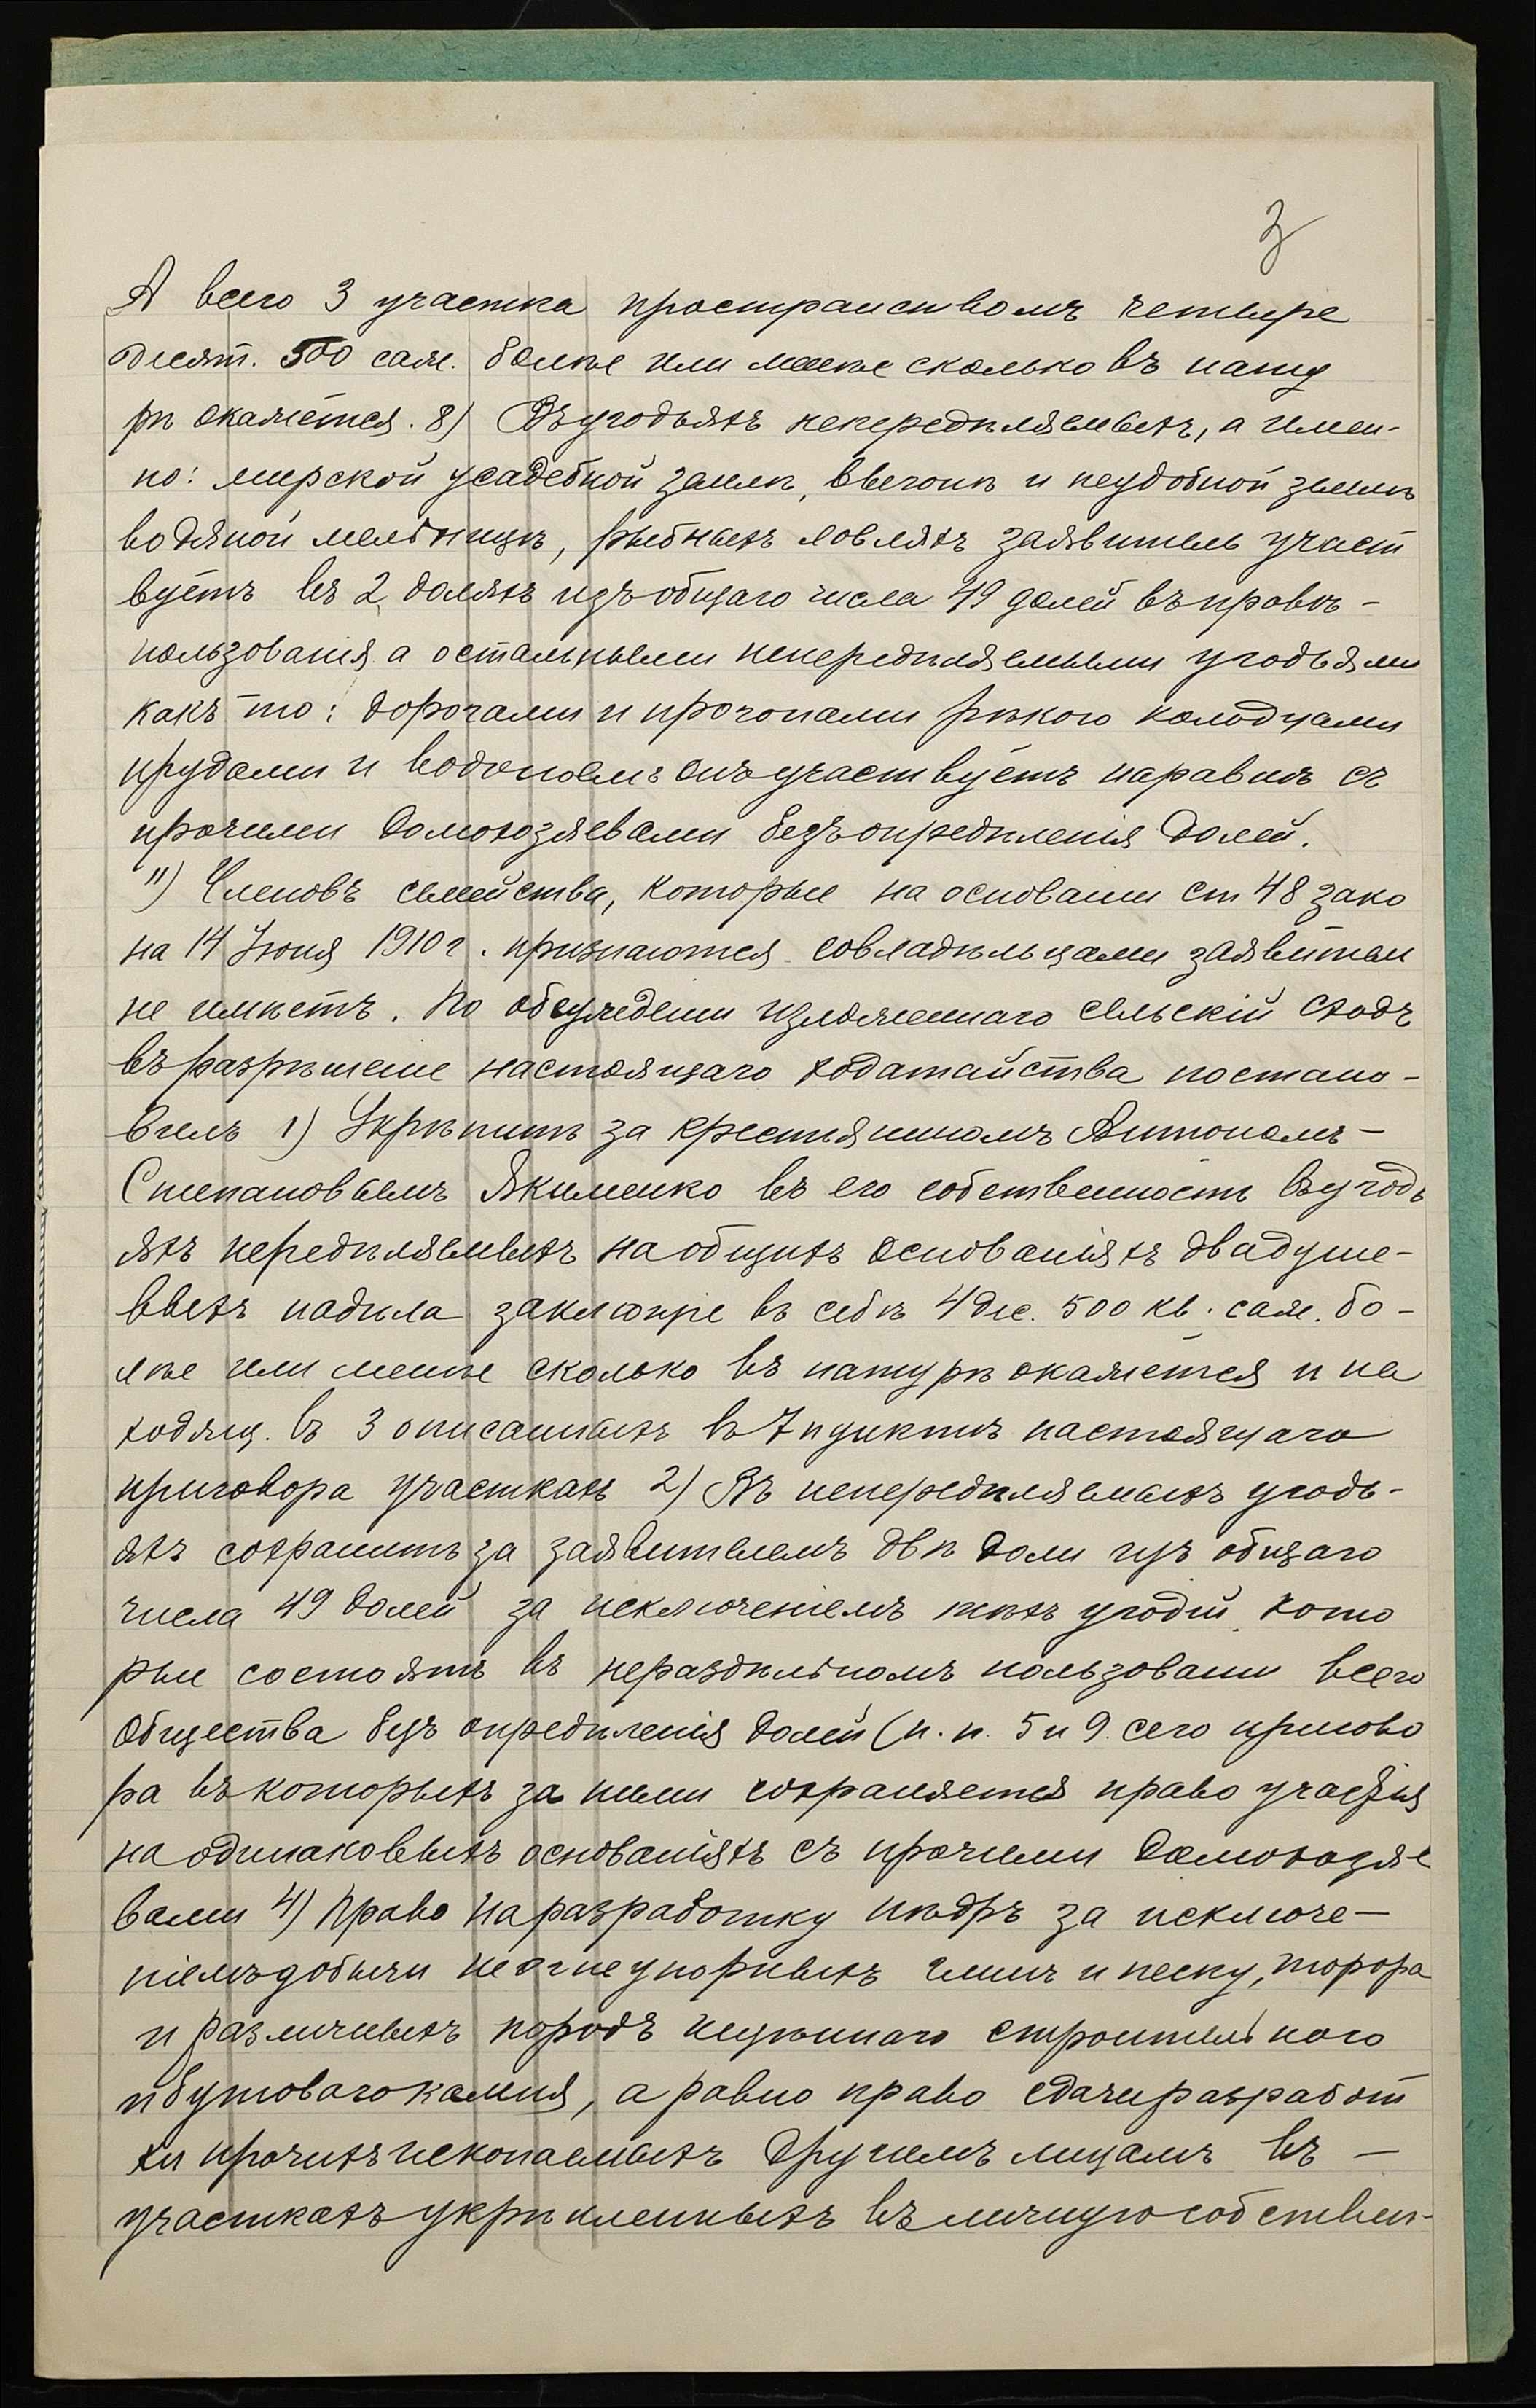 3
А всего 3 участка пространствомъ четыре
десят. 500 саж. болѣе или менѣе сколько въ нату
рѣ окажется. 8) Въ угодьяхъ непередѣляемыхъ, а имен-
но: мирской усадебной землѣ, выгонѣ и неудобной землѣ
водяной мельницѣ, рыбныхъ ловляхъ заявитель участ
вуетъ въ 2 доляхъ изъ общаго числа 49 долей въ правѣ-
пользованія а остальными непередѣляемыми угодьями
какъ то: дорогами и прогонами рѣкою колодцами
прудами и водопоемъ онъ участвуетъ наравнѣ съ
прочими домохозяевами безъ опредѣленія долей.
11) Членовъ семейства, которые на основаніи ст 48 зако
на 14 Іюня 1910 г. признаются совладѣльцами заявитель
не имѣетъ. По обсужденіи изложеннаго сельскій сходъ
въ разрѣшеніе настоящаго ходатайства постано-
вилъ 1) Укрѣпить за крестяниномъ Антономъ-
Степановымъ Якименко въ его собственность въ угодь
яхъ передѣляемыхъ на общихъ основаніяхъ два душе-
выхъ надѣла въ себѣ 4 дес. 500 кв. саж. бо-
лѣе или менѣе сколько въ натурѣ окажется и на
ходящ. въ 3 описанныхъ въ 7 пунктѣ настоящаго
приговора участкахъ 2) Въ непередѣляемыхъ угодь-
яхъ сохранить за заявителемъ двѣ доли изъ общаго
числа 49 долей за исключеніемъ тѣхъ угодій кото
рые состоятъ въ нераздѣльномъ пользованіи всего
Общества безъ опредѣленія долей (п. п. 5 и 9 сего пригово
ра въ которыхъ за ними сохраняется право участія
на одинаковыхъ основаніяхъ съ прочими домохозяе
вами 4) Право на разработку нѣдръ за исключе-
ніемъ добычи неогнеупорныхъ глинъ и песку, торфа
и различныхъ породъ строительного
и бутоваго камня, а равно право сдачи разработ
ки прочихъ ископаемыхъ другимъ лицамъ въ -
участкахъ укрѣпленныхъ въ личную собствен-